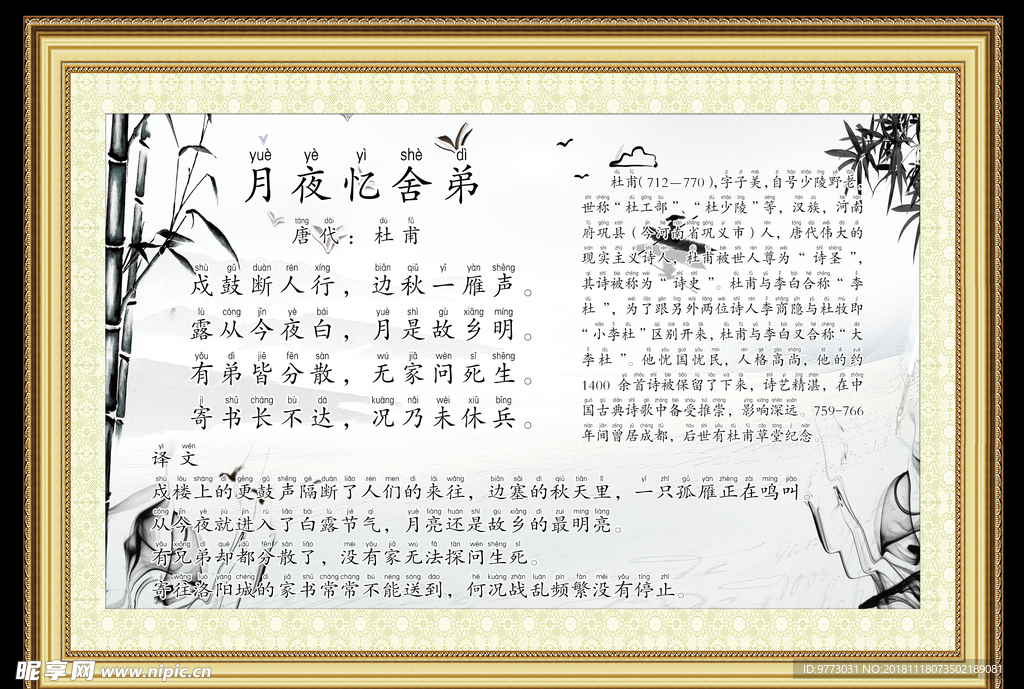 yuè yè yì shè dì
月夜忆舍弟
táng dài dù fǔ
唐代：杜甫
shù gǔ duàn rén xíng biān qiū yī yàn shēng
戍鼓断人行，边秋一雁声。
lù cóng jīn yè bái yuè shì gù xiāng míng
露从今夜白，月是故乡明。
yǒu dì jiē fēn sàn wú jiā wèn sǐ shēng
有弟皆分散，无家问死生。
jì shū cháng bù dá kuàng nǎi wèi xiū bīng
寄书长不达，况乃未休兵。
yì wén
译文
戍楼上的更鼓声隔断了人们的来往，边塞的秋天里，一只孤雁正在鸣叫。
从今夜就进入了白露节气，月亮还是故乡的最明亮。
有兄弟却都分散了，没有家无法探问生死。
寄往洛阳城的家书常常不能送到，何况战乱频繁没有停止。
杜甫（712—770），字子美，自号少陵野老，
世称“杜工部”、“杜少陵”等，汉族，河南
府巩县（今河南省巩义市）人，唐代伟大的
现实主义诗人，杜甫被世人尊为“诗圣”，
其诗被称为“诗史”。杜甫与李白合称“李
杜”，为了跟另外两位诗人李商隐与杜牧即
“小李杜”区别开来，杜甫与李白又合称“大
李杜”。他忧国忧民，人格高尚，他的约
1400 余首诗被保留了下来，诗艺精湛，在中
国古典诗歌中备受推崇，影响深远。759-766
年间曾居成都，后世有杜甫草堂纪念。
昵享网 www.nipic.cn
ID:9773031 NO:20181118073502189081